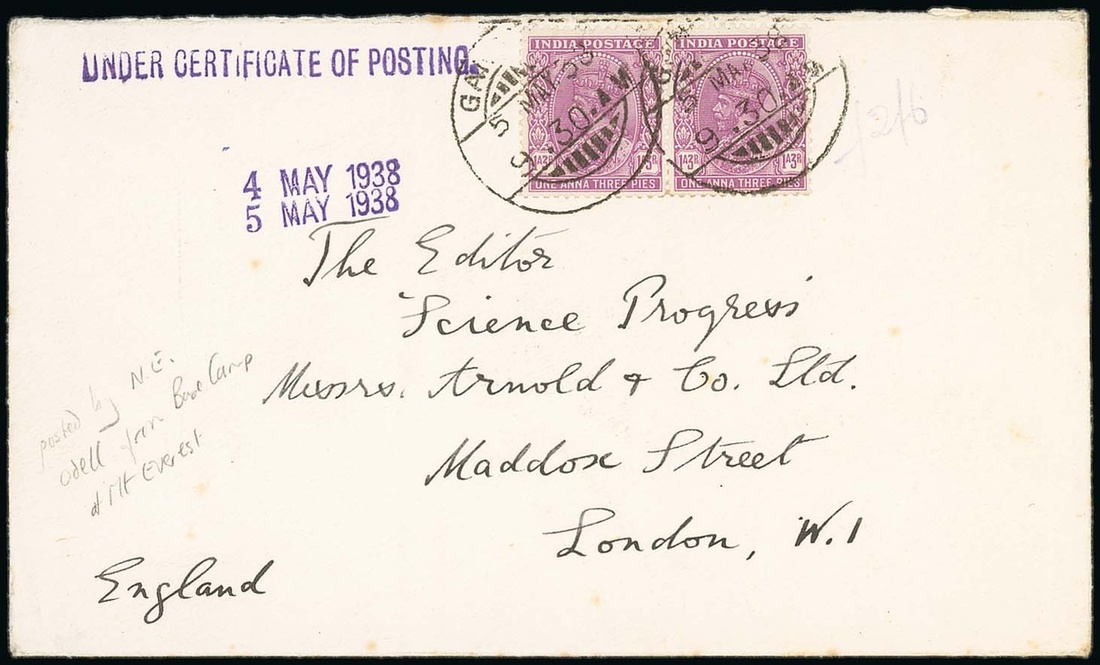 UNDER CERTIFICATE OF POSTING.
INDIA POSTAGE INDIA POSTAGE
5 MAY 38
9.30.A.M.
5 MAY 38
9.30.A.M.
1A3P 1A3P 1A3P
ONE ANNA THREE PIES ONE ANNA THREE PIES
4 MAY 1938
5 MAY 1938
The Editor
'Science Progress'
Messrs. Arnold & Co. Ltd.
Maddox Street
London, W.1
England
posted by N.E.
odell from Base Camp
at Mt Everest.